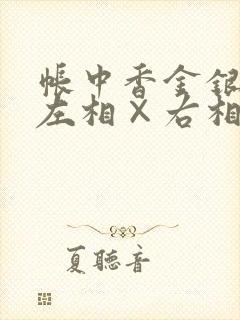 帳中香金銀
左相×右相
夏聽音